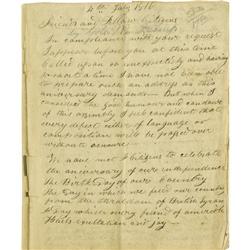 4th July 1816
Friends and fellow Citizens
In compliance with your request
I appear before you at this time
Called upon so unexpectedly and having
so short a time I have not been able
to prepare such an address as this
anniversary demands But when I
consider the good humour and candour
of this assembly I feel confident that
every defect either of language or
composition will be passed over
without censure
We have met Citizens to celebrate
the anniversary of our independence
The Birth Day of our Country
The Day in which we free our country
from the thraldom of British Tyranny
A Day which every friend of
Hails exultation and joy